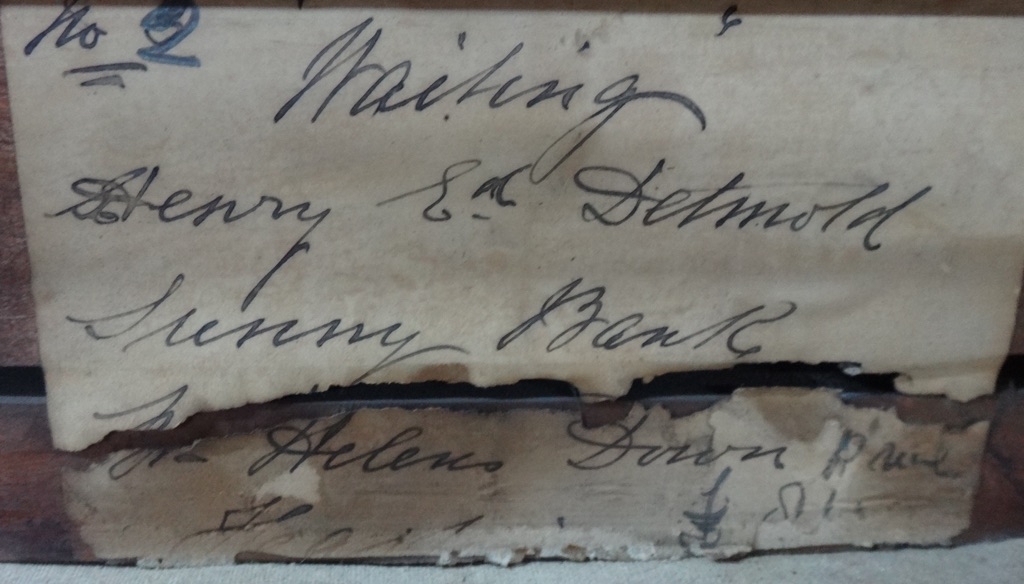 No 2
Waiting
Henry Ed Detmold
Sunny Bank
St Helens Down